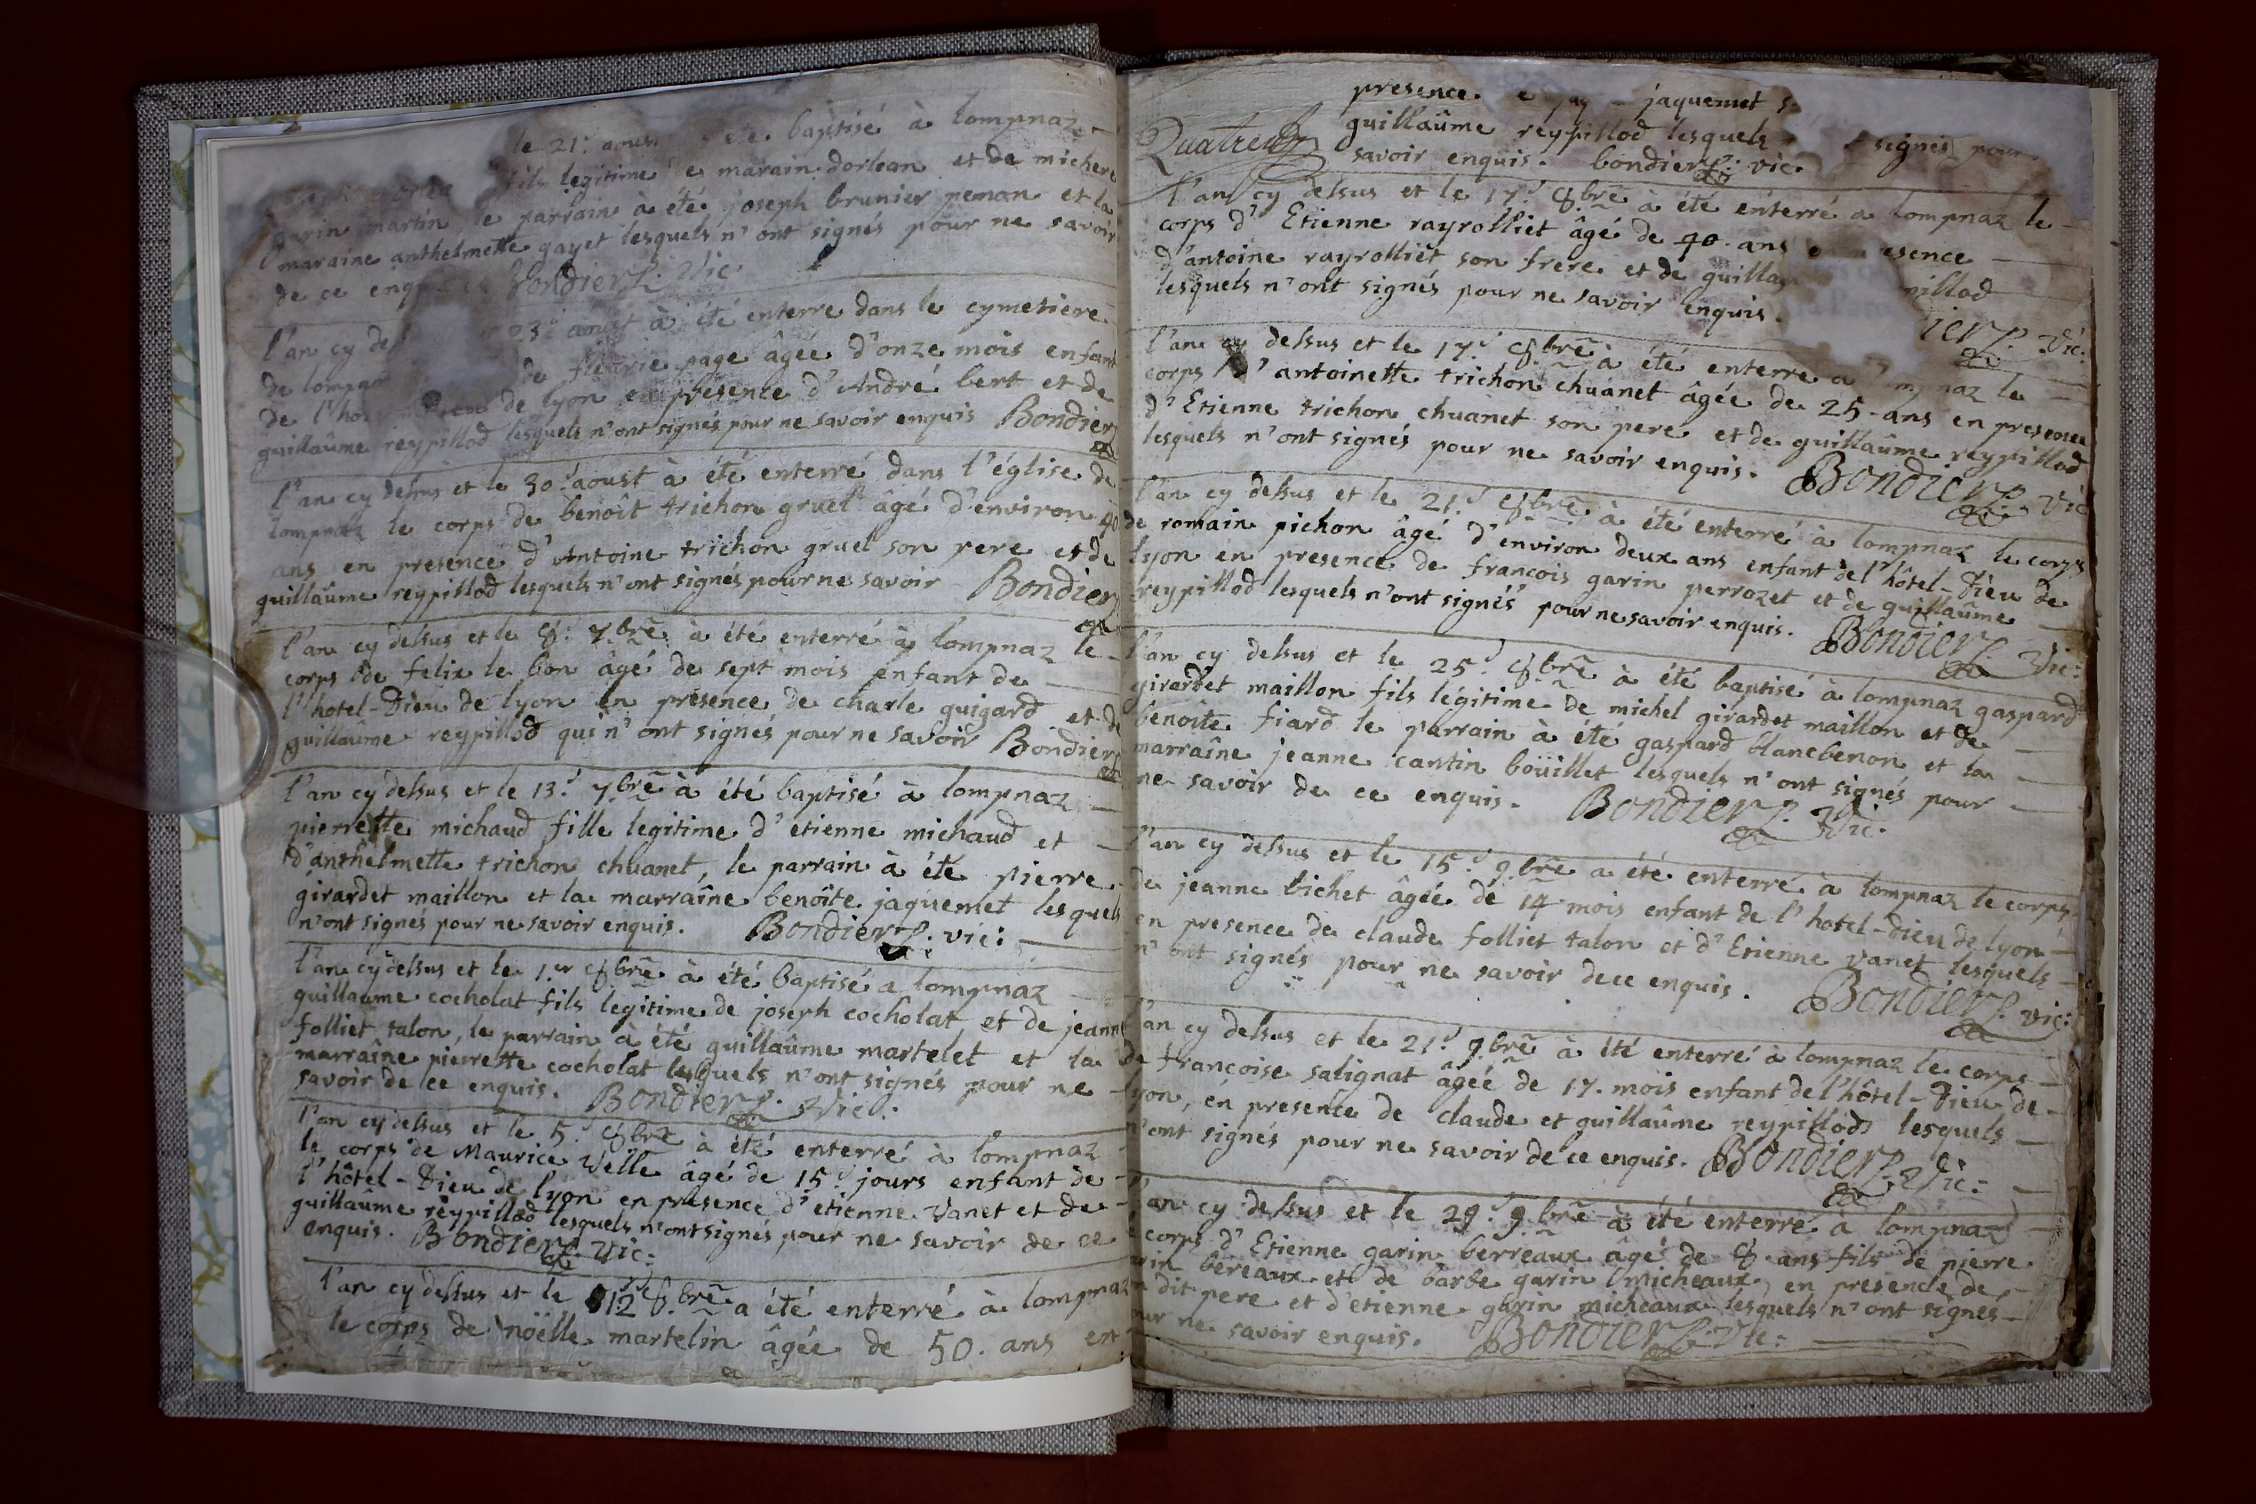 le 21.e baptisé à lompnaz
fils legitime de marain dorlean et de michere
garin martin, le parrain à été joseph brunier penon et la
maraine anthelmette gayet lesquels n'ont signés pour ne savoir
de ce enquis Bondier P. Vic:
l'an cy aoust à été enterré dans le cymetiere
de lompnaz de fleurie page âgée d'onze mois enfant
de l'hotel Dieu de lyon en presence d'André bert et de
guillaûme reypillod lesquels n'ont signés pour ne savoir enquis Bondier
l'an cy dessus et le 30.e aoust à été enterré dans l'église de
lompnaz le corps de benoît trichon gruel âgé d'environ 40
ans en presence d'Antoine trichon gruel son pere et de
guillaûme reypillod lesquels n'ont signés pour ne savoir Bondier
l'an cy dessus et le 8.e 7.bre à été enterré à lompnaz le
corps de felix le bon âgé de sept mois enfant de
l'hotel-Dieu de lyon en présence de charle guigard et de
guillaûme reypillod qui n'ont signés pour ne savoir Bondier
l'an cy dessus et le 13.e 7.bre à été baptisé à lompnaz
pierrette michaud fille legitime d'etienne michaud et
d'anthelmette trichon chuanet, le parrain à été pierre
girardet maillon et la marraîne benoîte jaquemet lesquels
n'ont signés pour ne savoir enquis. Bondier P. vic:
l'an cy dessus et le 1.er 8.bre à été baptisé a lompnaz
guillaume cocholat fils legitime de joseph cocholat et de jeanne
folliet talon, le parrain à été guillaûme martelet et la
marraîne pierrette cocholat lesquels n'ont signés pour ne
savoir de ce enquis. Bondier P. Vic.:
l'an cy dessus et le 5.e 8.bre à été enterré à lompnaz
le corps de Maurice Velle âgé de 15.e jours enfant de
l'hôtel-Dieu de lyon en presence d'etienne Vanet et de
guillaûme reypillod lesquels n'ont signés pour ne savoir de ce
enquis. Bondier P. Vic:
l'an cy dessus et le 12.e 8.bre a été enterré à lompnaz
le corps de noëlle martelin âgée de 50. ans en
presence jaquemet
Quatre guillaûme reypillod lesquels signés pour
savoir enquis. bondier P: vic.
l'an cy dessus et le 17.e 8.bre à été enterré a lompnaz le
corps d'Etienne rayrolliet âgé de 40. ans
d'antoine rayrolliet son frere et de
lesquels n'ont signés pour ne savoir enquis. Vic:
l'an cy dessus et le 17.e 8.bre à été enterré a lompnaz le
corps d'antoinette trichon chuanet âgée de 25-ans en presence
d'Etienne trichon chuanet son pere et de guillaûme reypillod
lesquels n'ont signés pour ne savoir enquis. Bondier P. Vic
l'an cy dessus et le 21.e 8.bre à été enterré à lompnaz le corps
de romain pichon âgé d'environ deux ans enfant de l'hôtel-Dieu de
lyon en presence de francois garin perrozet et de guillaûme
reypillod lesquels n'ont signés pour ne savoir enquis. Bondier P. Vic:
l'an cy dessus et le 25.e 8.bre à été baptisé à lompnaz gaspard
girardet maillon fils légitime de michel girardet maillon et de
benoîte fiard le parrain à été gaspard blancbenon et la
marraîne jeanne cantin boüillet lesquels n'ont signés pour
ne savoir de ce enquis. Bondier P. Vic.
l'an cy dessus et le 15.e 9.bre a été enterré à lompnaz le corps
de jeanne bichet âgée de 14 mois enfant de l'hotel-dieu de lyon
en presence de claude folliet talon et d'Etienne vanet lesquels
n'ont signés pour ne savoir dece enquis. Bondier P. Vic:
l'an cy dessus et le 21.e 9.bre à été enterré à lompnaz le corps
de francoise salignat âgée de 17. mois enfant de l'hôtel-Dieu de
lyon, en presence de claude et guillaûme reypillods lesquels
n'ont signés pour ne savoir de ce enquis. Bondier P. Vic:
l'an cy dessus et le 29.e 9.bre à été enterré à lompnaz
le corps d'Etienne garin berreaux âgé de 8 ans fils de pierre
garin bereaux et de barbe garin micheaux, en presence de
dit pere et d'etienne garin micheaux lesquels n'ont signés
pour ne savoir enquis. Bondier P. Vic: